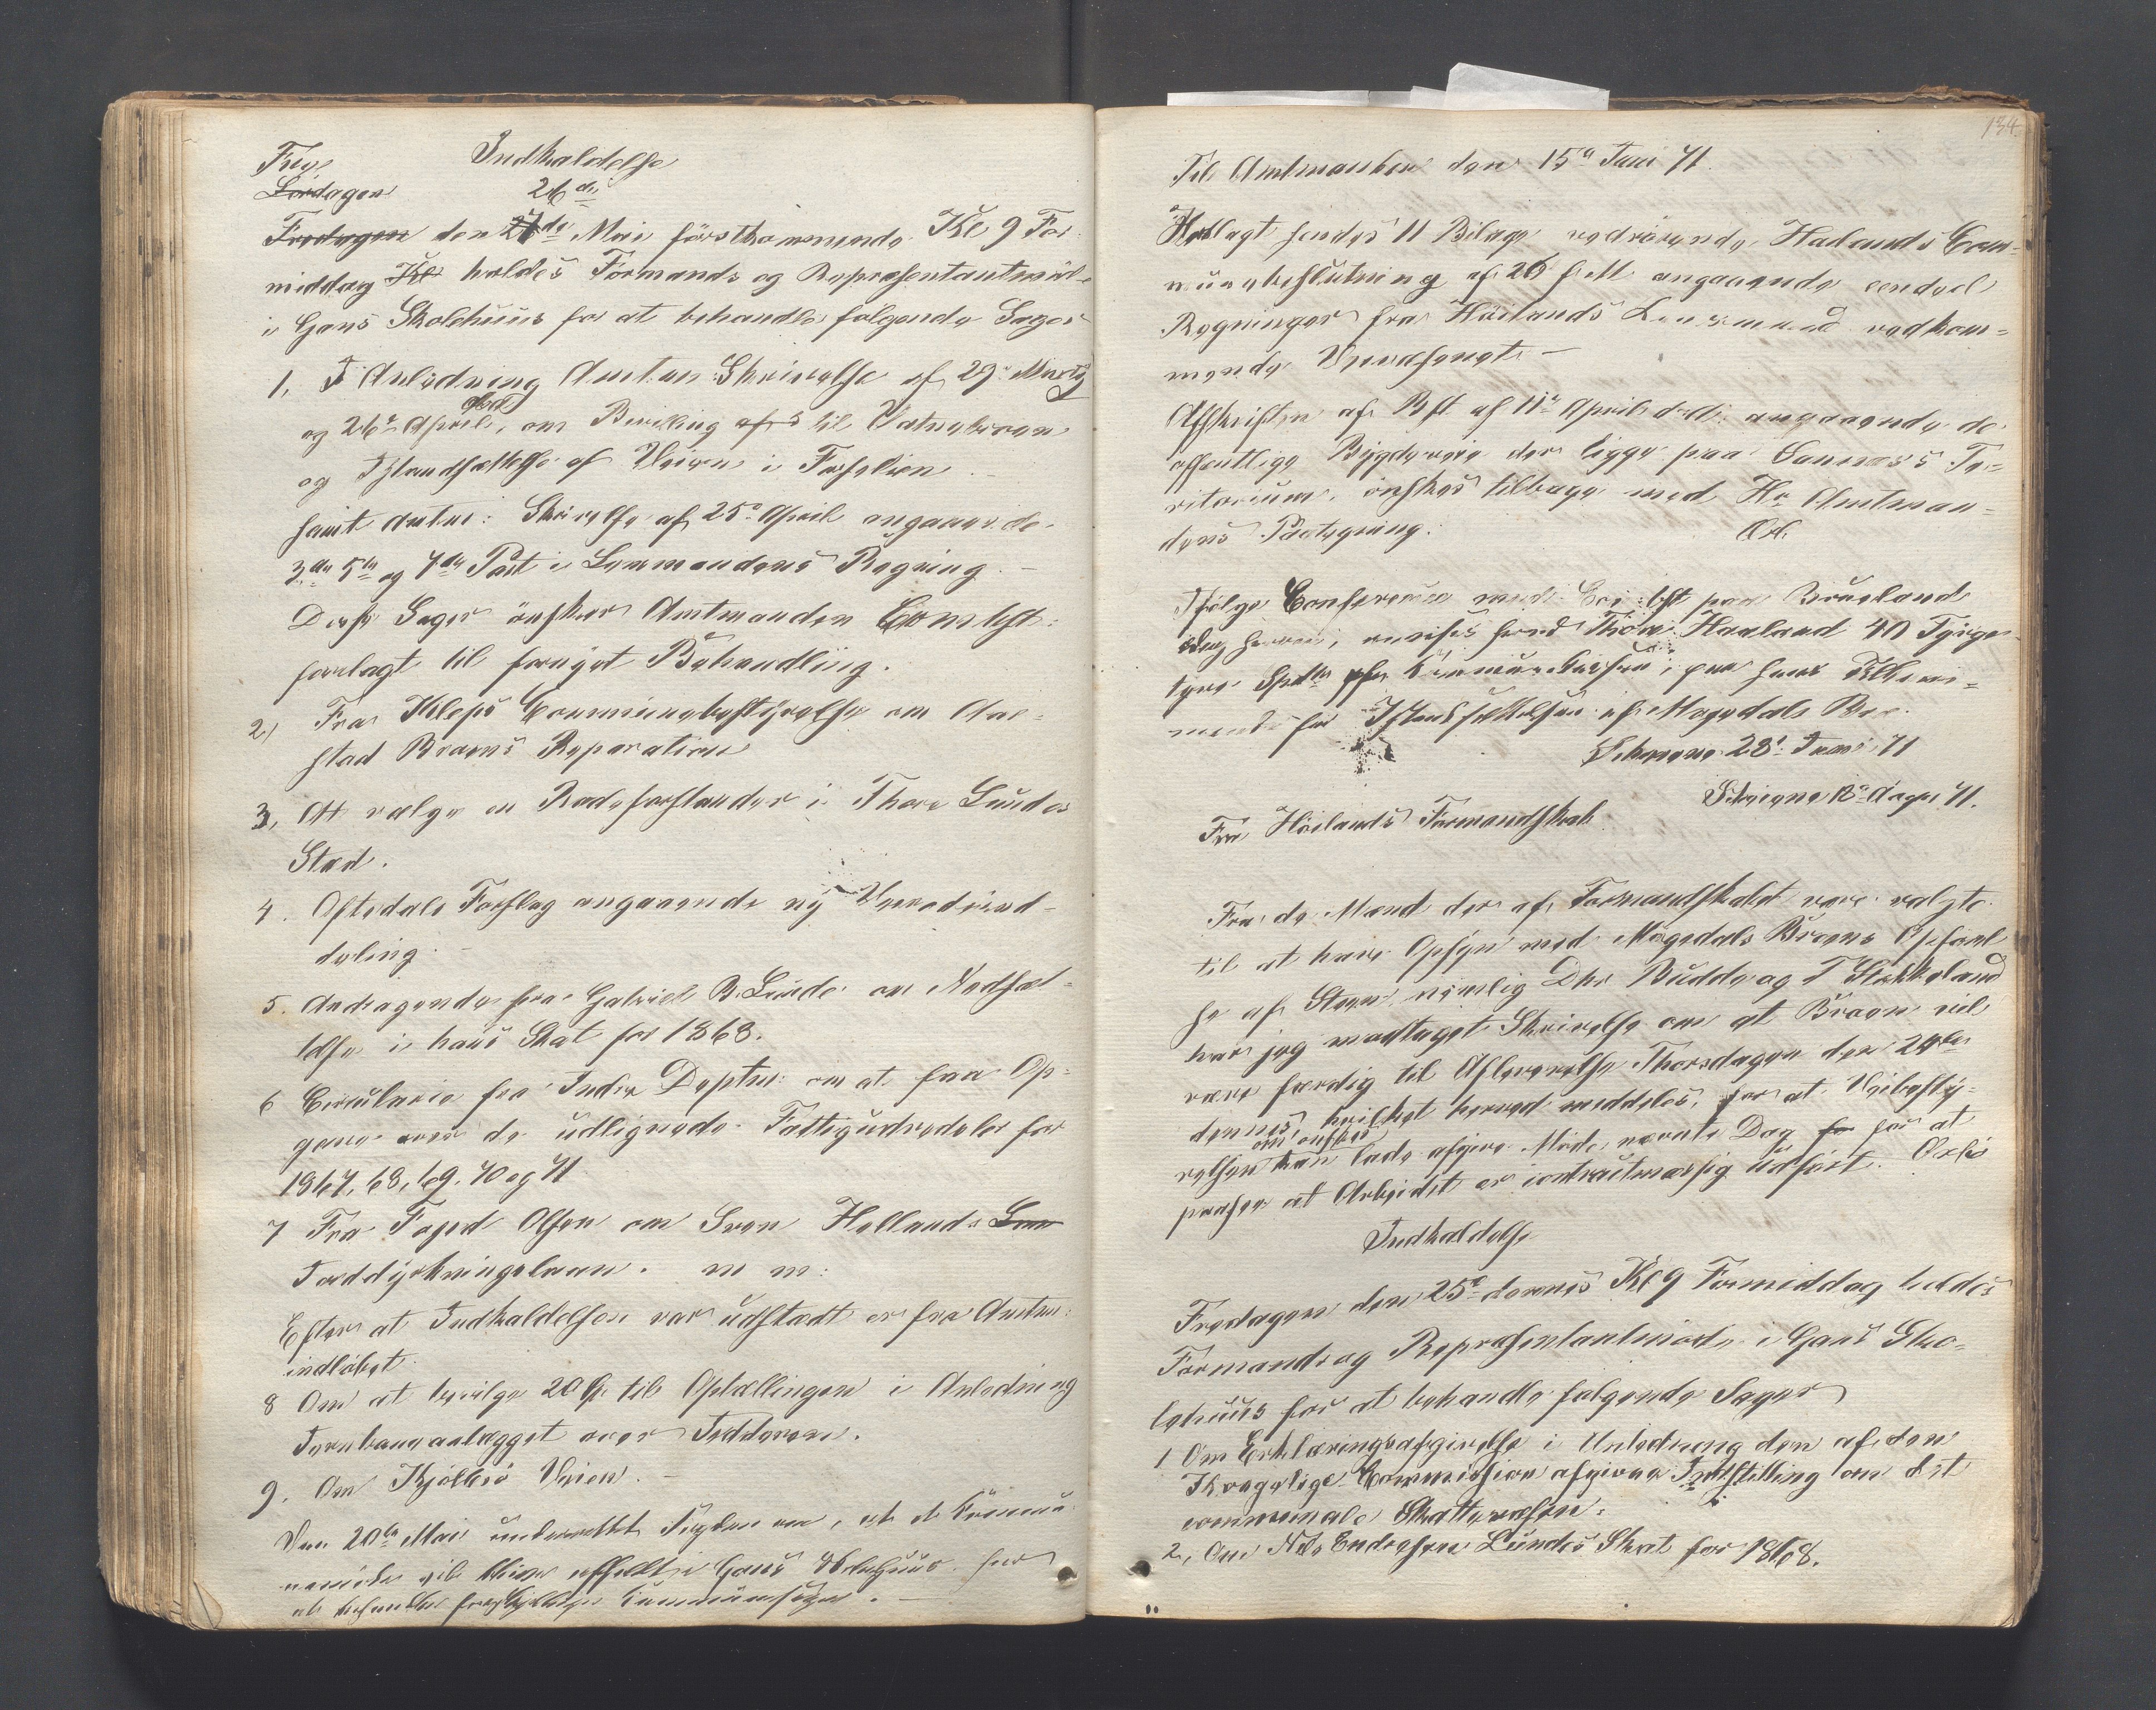 Indkaldelse
Frey
Lördagen 26de
Fredagen den 27de Mai förstkommende Kl 9 For
middag Kl holdes Formands og Repræsentantmöde
i Gans Skolehuus for at behandle fölgende Sager
1, I Anledning Amtm: Skrivelse af 29de Marts
og 26de April, om Bevilling til
og Istandsættelse af Veien i
samt Amtm: Skrivelse af 25de April angaaende
3die 5te og 7de Post i Lensmandens Regning. –
Disse Sager önsker Amtmanden Combst:
forelagt til fornyet Behandling.
2, Fra Kleps Communebestyrelse om Aae-
stad Broens Reparation
3, At vælge en Rodeforstander i Thore Lundes
Sted.
4. Aftedals Forslag angaaende ny
deling.
5. Andragende fra Gabriel B. Lunde om Nedsæt-
telse i hans Skat for 1868.
6 Circulaire fra Indre Deptm: om at faa Op-
gave over de udlignede Fattigudredsler for
1867, 68, 69, 70 og 71
7 Fra Foged Olsen om Sven Hellands
Jorddyrkningslaan. m m:
Efter at Indkaldelsen var udstædt er fra Amtm:
indlöbet.
8 Om at bevilge 20 til Optællingen i Anledning
Jernbaneanlægget over Jædderen.
9. Om Veien. –
Den 20de Mai underrettet om, at et Commu
nemöde vil blive afholdt i Gans Skolehuus for
at behandle forskjellige Communesager. –
134
Til Amtmanden den 15de Juni 71.
Hoslagt sendes 11 Bilage vedrörende Hœlands Com-
munebeslutning af 26 f. M. angaaende eendeel
Regninger fra Höilands Lensmand vedkom-
mende Veivæsenet –
Afskriften af Bst. af 11te April d. A. angaaende de
offentlige Bygdeveie der ligge paa Sannæs's Te-
ritorium, önskes tilbage med Hr. Amtman-
dens Paategning.
Ifölge Conference med paa Brueland
Dag anvises herved Thöre Haaland 40 Tyge
tyve Spd. Communekassen, paa hans
for Istandsættelsen af Mogedals Bro.
28de Juni 71
12te August 71.
Fra Höilands Formandskab
Fra de Mænd der af Formandskabet vare valgte
til at have Opsyn med Mogedals Broens Opförel
se af Steen nemlig Dhr Budde og T Stokkeland
har jeg modtaget Skrivelse om at Broen vil
være færdig til Afleverelse Thorsdagen den 24de
dennes, hvilket herved meddeles, for at Veibesty-
om önskes
relsen kan lade afgive Möde nævnte Dag for for at
pröve at Arbeidet er contractmæssig udfört.
Indkaldelse
Fredagen den 25de dennes Kl 9 Formiddag holdes
Formands og Repræsentantmöde i Gans Sko-
lehuus for at behandle fölgende Sager
1 Om Erklæringsafgivelse i Anledning den af den
Kongelige Commission afgivne Indstilling om det
communale Skattevæsen.
2, Om Nils Endresens Lundes Skat for 1868.